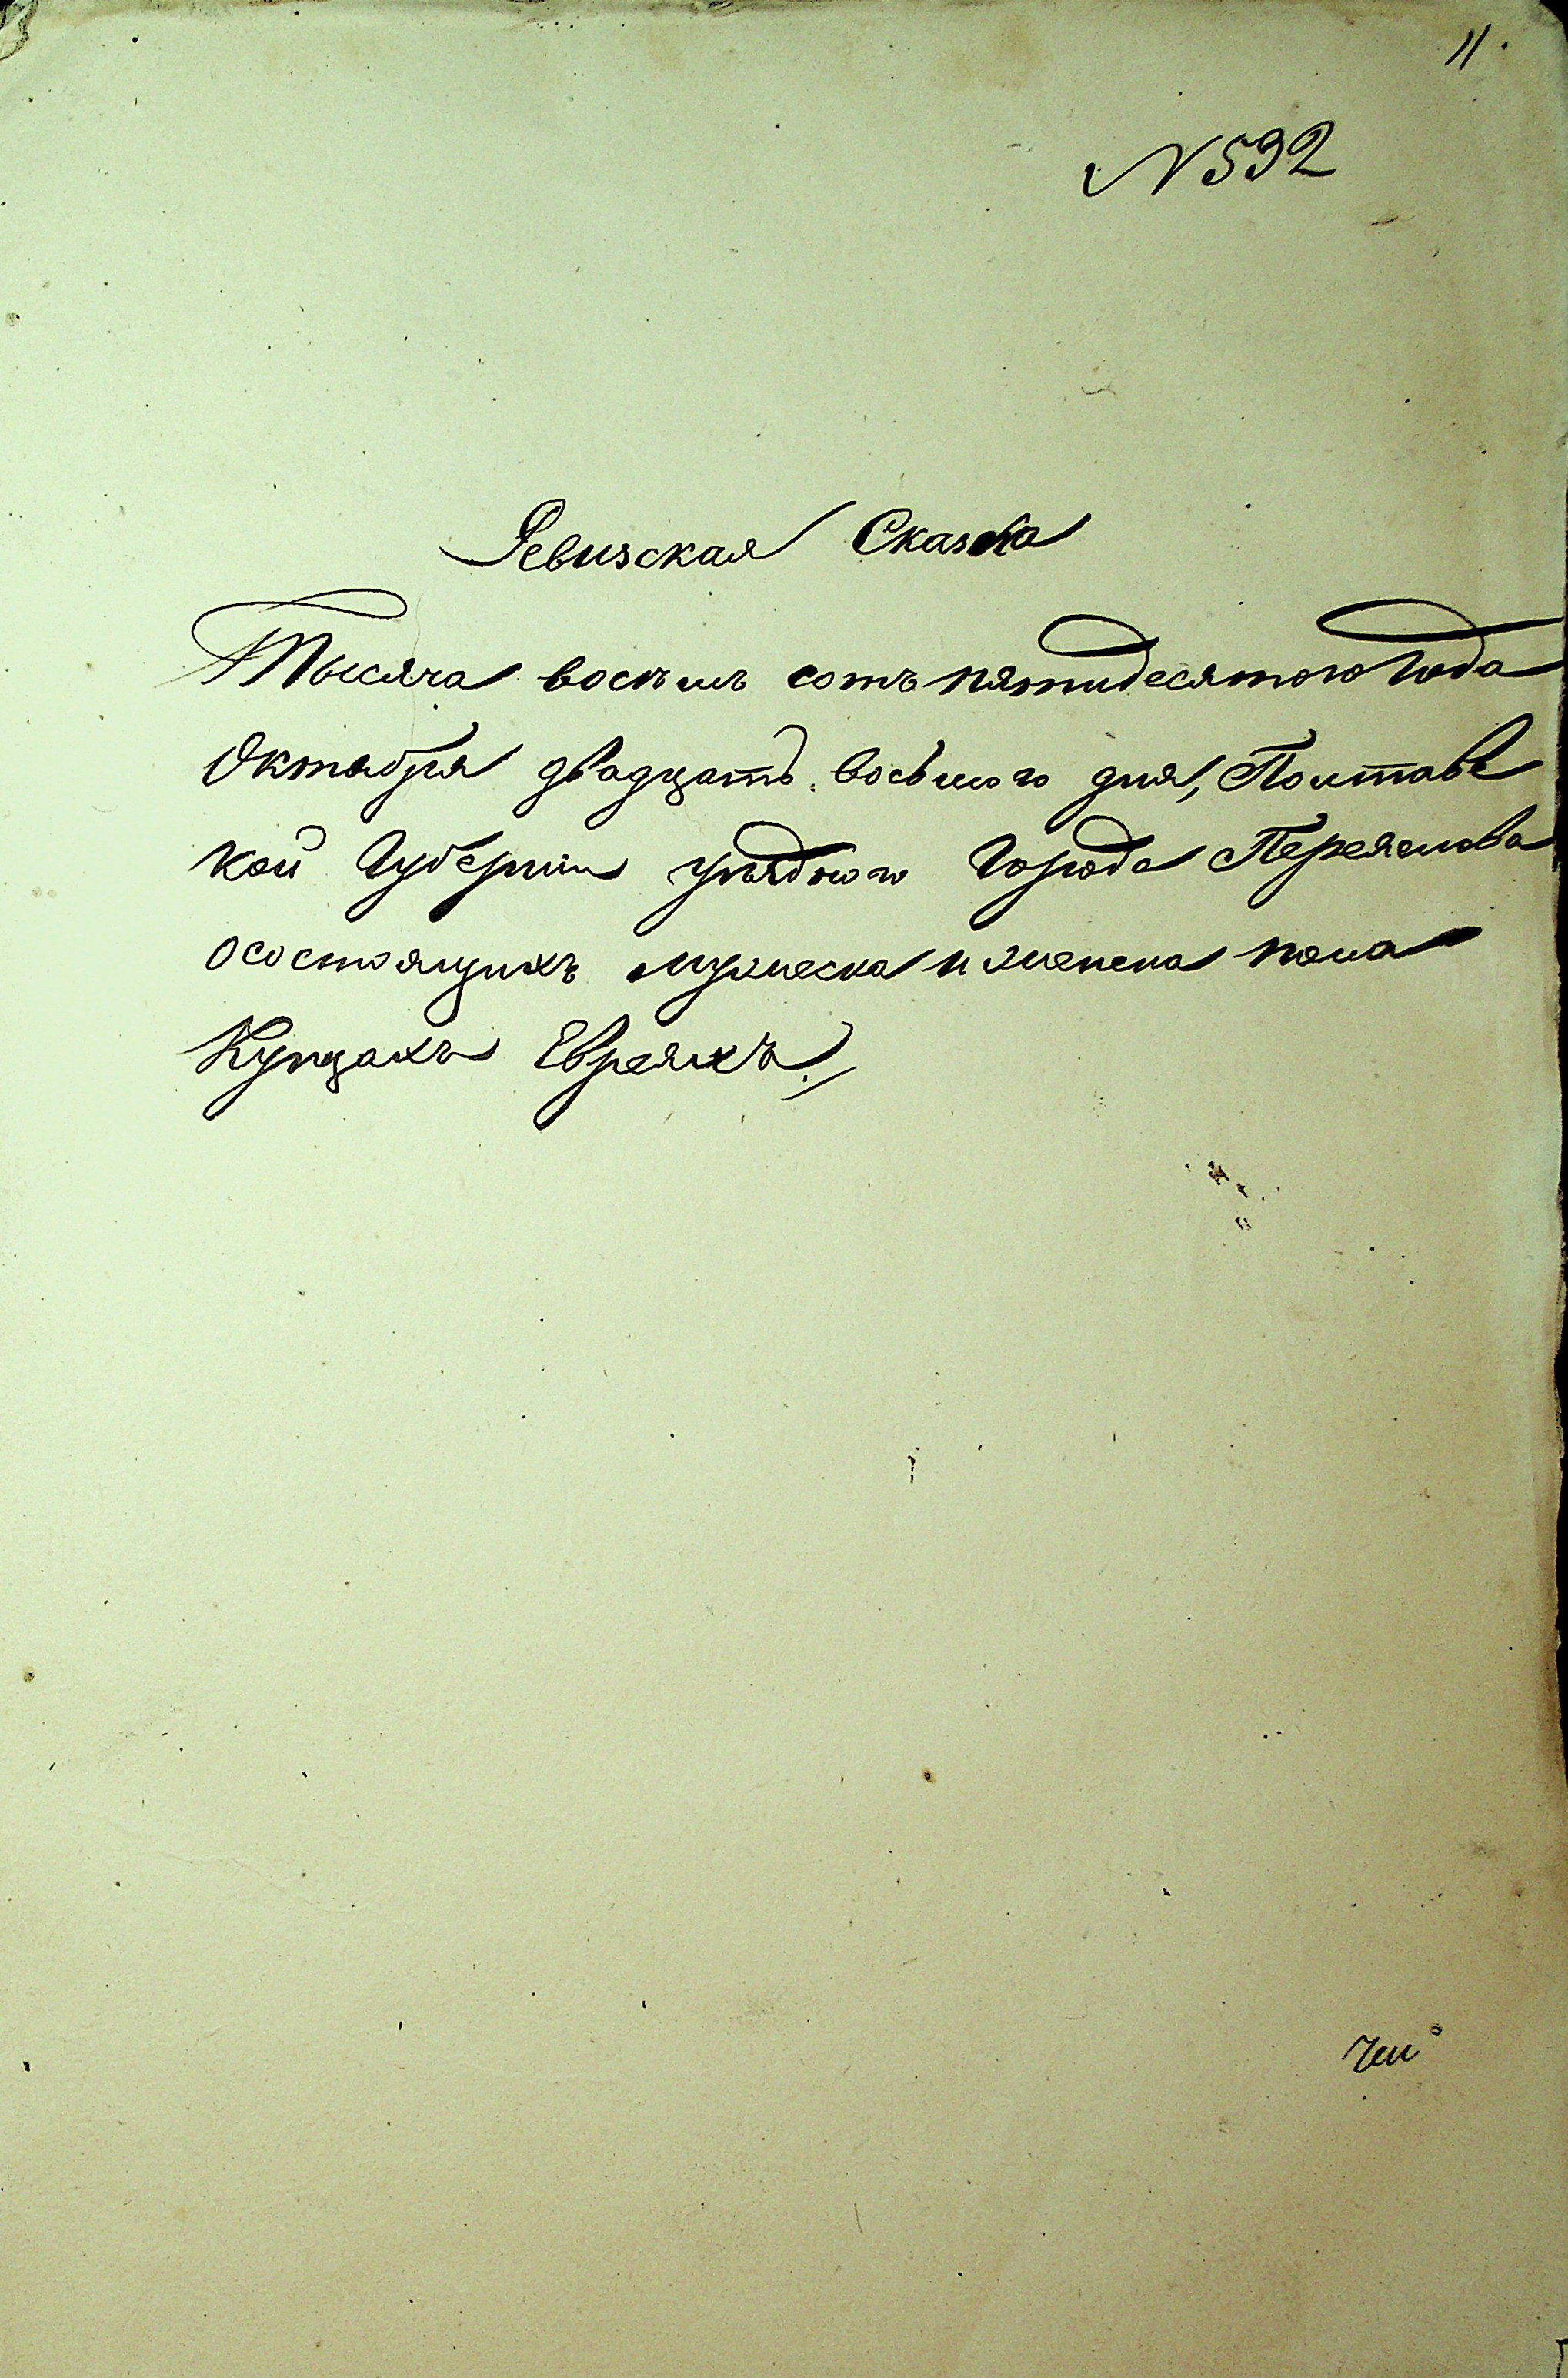 11.
N 592
Ревизская Сказка
Тысяча восемь сотъ пятидесятого Года
Октября двадцать восьмого дня, Полтавс
кой Губерніи уѣзднаго Города Переяслова
осостоящихъ мужеска и женска пола
Купцахъ Евреяхъ.